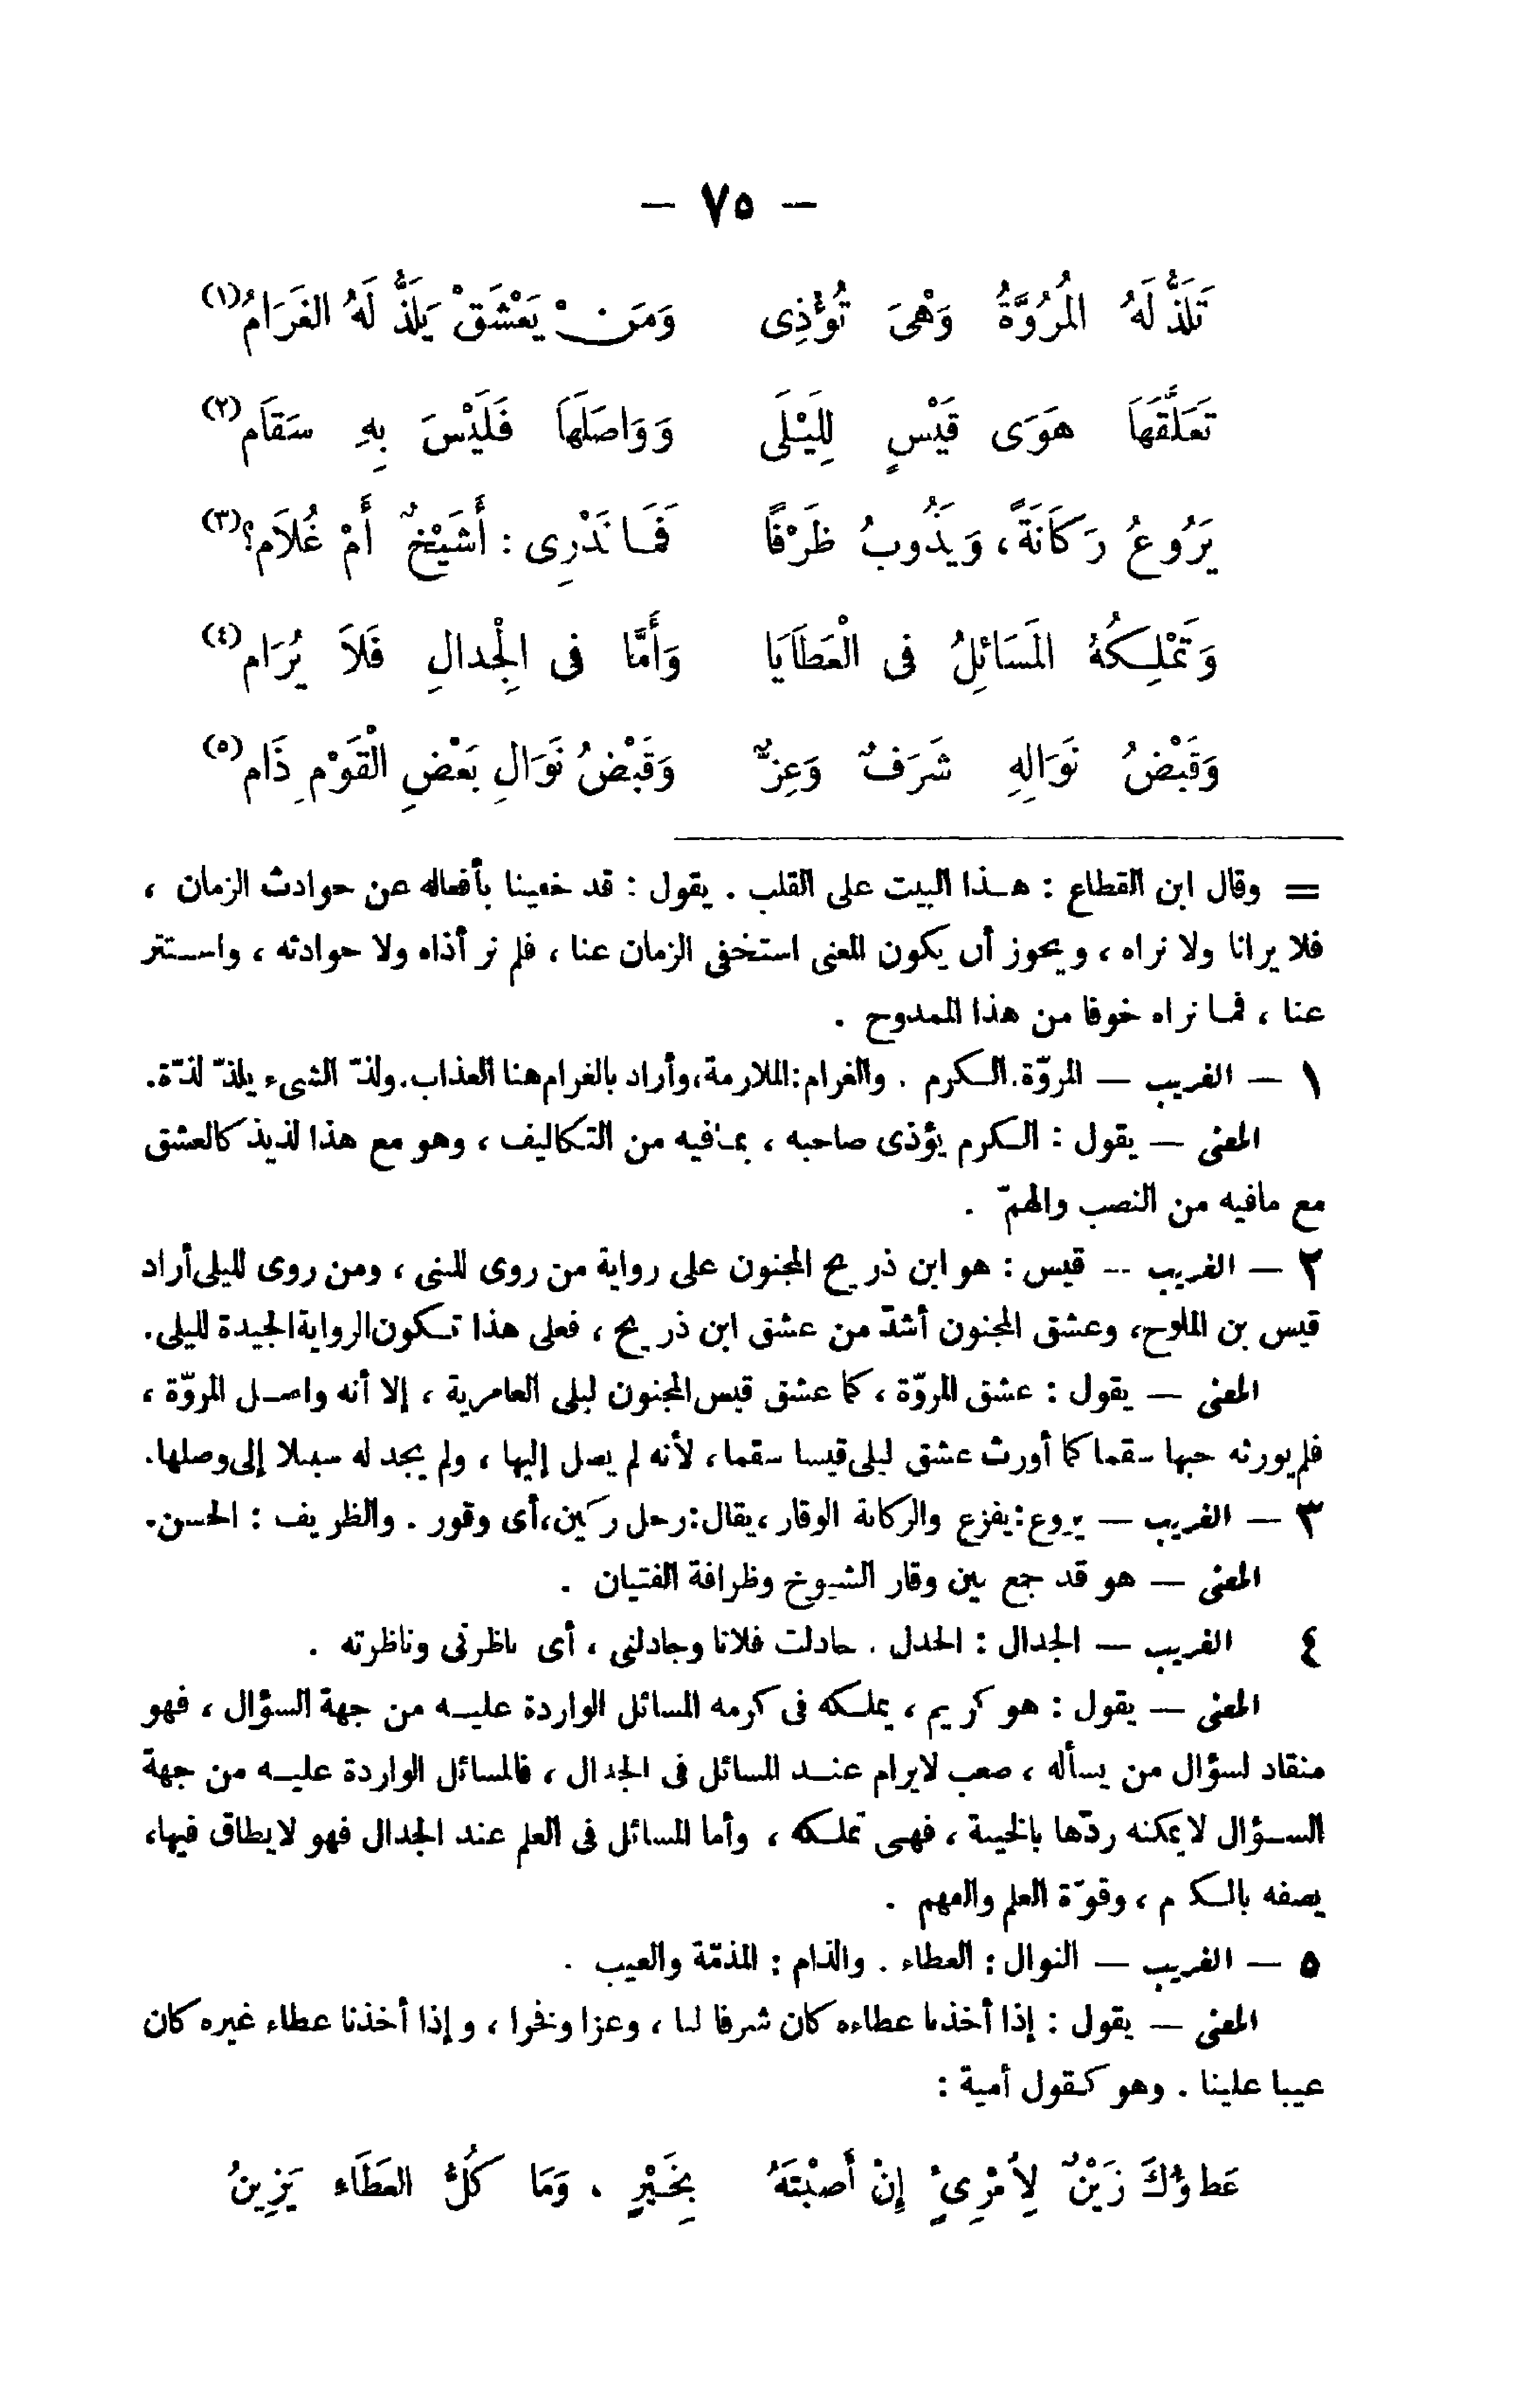 — ٧٥ —
تَلَذُّ لَهُ الْمُرُوَّةُ وَهْىَ تُؤْذِى وَمَنْ يَعْشَقْ يَلَذُّ لَهُ الْغَرَامُ(١)
تَعَلَّقَهَا هَوَى قَيْسٍ لِلَيْلَى وَوَاصَلَهَا فَلَيْسَ بِهِ سَقَام(٢)
يَرُوعُ رَكَانَةً، وَيَذُوبُ ظَرْفًا فَمَا نَدْرِى : أَشَيْخٌ أَمْ غُلَامُ؟(٣)
وَتَمْلِكُهُ الْمَسَائلُ فى الْعَطَايَا وَأَمَّا فى الْجِدالِ فَلَا يُرَام(٤)
وَقَبْضُ نَوَالِهِ شَرَفٌ وَعِزٌّ وَقَبْضُ نَوَالِ بَعْضِ الْقَوْمِ ذَام(٥)
= وقال ابن القطاع : هـذا البيت على القلب . يقول : قد خفينا بأفعاله عن حوادث الزمان ،
فلا يرانا ولا نراه ، ويجوز أن يكون المعنى استخفى الزمان عنا ، فلم نر أذاه ولا حوادثه ، واستتر
عنا ، فما نراه خوفا من هذا الممدوح .
١ — الغريب — المروّة.الكرم . والغرام:الملازمة،وأراد بالغرام هنا العذاب.ولذّ الشىء يلذّ لذّة.
المعنى — يقول : الكرم يؤذى صاحبه ، بما فيه من التكاليف ، وهو مع هذا لذيذ كالعشق
مع مافيه من النصب والهمّ .
٢ — الغريب -- قيس : هو ابن ذريح المجنون على رواية من روى للبنى ، ومن روى لليلى أراد
قيس بن الملوح، وعشق المجنون أشدّ من عشق ابن ذريح ، فعلى هذا تكون الرواية الجيدة لليلى.
المعنى — يقول : عشق المروّة ، كما عشق قيس المجنون ليلى العامرية ، إلا أنه واصل المروّة ،
فلم يورثه حبها سقما كما أورث عشق ليلى قيسا سقما، لأنه لم يصل إليها ، ولم يجد له سبيلا إلى وصلها.
٣ — الغريب — يروع:يفزع والركانة الوقار ،يقال:رجل ركين،أى وقور . والظريف : الحسن.
المعنى — هو قد جمع بين وقار الشيوخ وظرافة الفتيان .
٤ الغريب — الجدال : الجدل . جادلت فلانا وجادلنى ، أى ناظرنى وناظرته .
المعنى — يقول : هو كريم ، يملكه فى كرمه المسائل الواردة عليه من جهة السؤال ، فهو
منقاد لسؤال من يسأله ، صعب لايرام عند المسائل فى الجدال ، فالمسائل الواردة عليه من جهة
السؤال لايمكنه ردّها بالخيبة ، فهى تملكه ، وأما المسائل فى العلم عند الجدال فهو لايطاق فيها،
يصفه بالكرم ، وقوّة العلم والفهم .
٥ — الغريب — النوال : العطاء . والذام : المذمّة والعيب .
المعنى — يقول : إذا أخذنا عطاءه كان شرفا لنا ، وعزا وفخرا ، وإذا أخذنا عطاء غيره كان
عيبا علينا . وهو كقول أمية :
عَطاؤُكَ زَيْنٌ لِأَمْرِئٍ إِنْ أَصَبْتَهُ بِخَيْرٍ ، وَمَا كُلُّ العَطَاء يَزِينُ